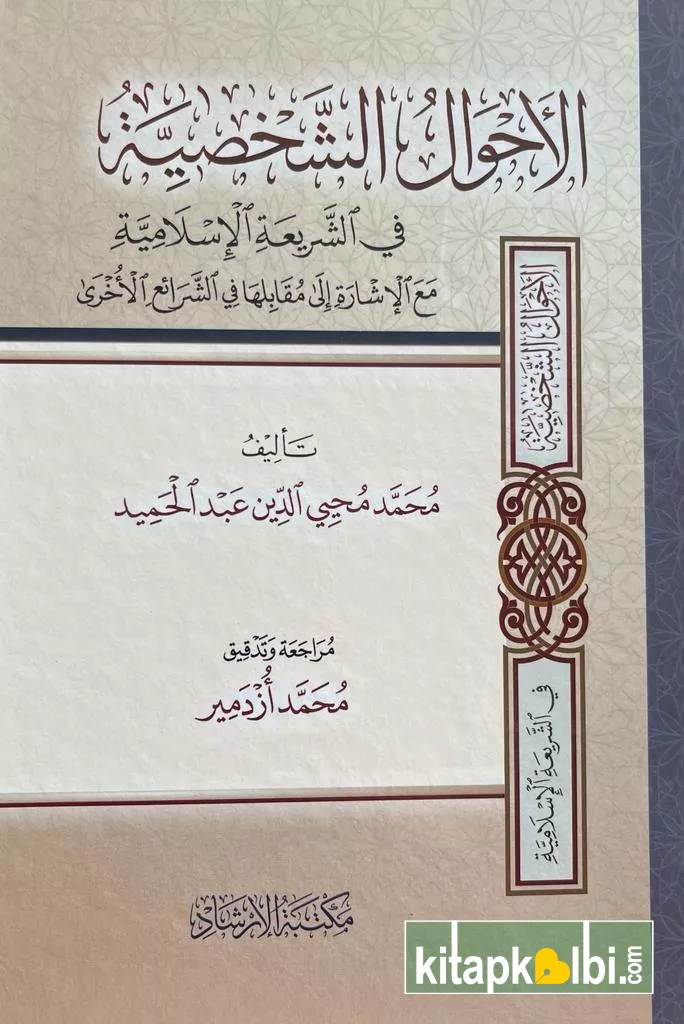 الأَحْوَالُ الشَّخْصِيَّةُ
فِي الشَّرِيعَةِ الْإِسْلَامِيَّةِ
مَعَ الْإِشَارَةِ إِلَى مُقَابِلِهَا فِي الشَّرَائِعِ الْأُخْرَى
الأَحْوَالُ الشَّخْصِيَّةُ
تَأْلِيفُ
مُحَمَّد مُحْيِي الدِّين عَبْد الْحَمِيد
مُرَاجَعَة وَتَدْقِيق
مُحَمَّد أُزْدَمِير
فِي الشَّرِيعَةِ الْإِسْلَامِيَّةِ
مَكْتَبَةُ الإِرْشَادِ
kitapkalbi.com